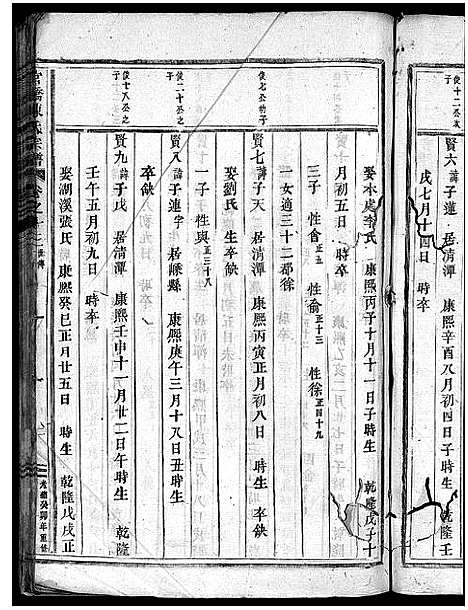 俊十二公次子
賢六 諱子蓮 居清潭 康熙辛酉八月初四日子時生 乾隆壬
戌七月十四日 時卒
娶本處李氏 康熙丙子十月十一日子時生 乾隆戊子十
月初五日 時卒
三子 性會正五 性俞正十三 性徐正四十九
一女適三十二都徐
俊七公幼子
賢七 諱子天 居清潭 康熙丙寅正月初八日 時生 卒缺
娶劉氏 生卒缺
一子 性與正三十八
俊二十公之子
賢八 諱子連 字行 居嵊縣 康熙庚午三月十八日丑時生
卒缺
俊十八公之子
賢九 諱子戊 居清潭 康熙壬申十一月廿二日午時生 乾隆
壬午五月初九日 時卒
娶湖溪張氏 康熙癸巳正月廿五日 時生 乾隆戊戌正
陳氏宗譜 卷之
光緒 年重修